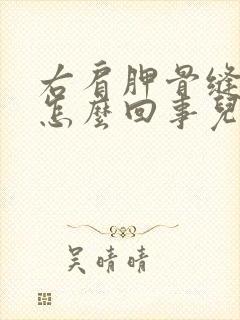 右肩胛骨缝
怎麼回事兒
吴晴晴